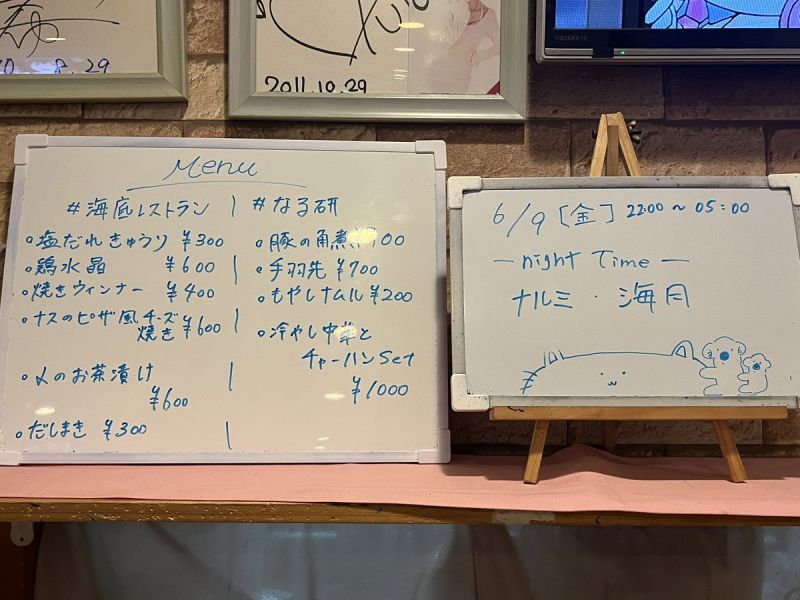 8.29
2011.10.29
HS50K610
Menu
#海底レストラン
#なる研
○塩だれきゅうり ¥300
○鶏水晶 ¥600
○焼きウィンナー ¥400
○ナスのピザ風チーズ
焼き ¥600
○〆のお茶漬け
¥600
○だしまき ¥300
○豚の角煮 00
○手羽先 ¥700
○もやしナムル ¥200
○冷やし中華と
チャーハンSet
¥1000
6/9 [金] 22:00 ~ 05:00
— night Time —
ナルミ · 海月